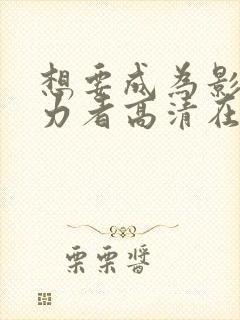 想要成为影
力者高清在
栗栗酱